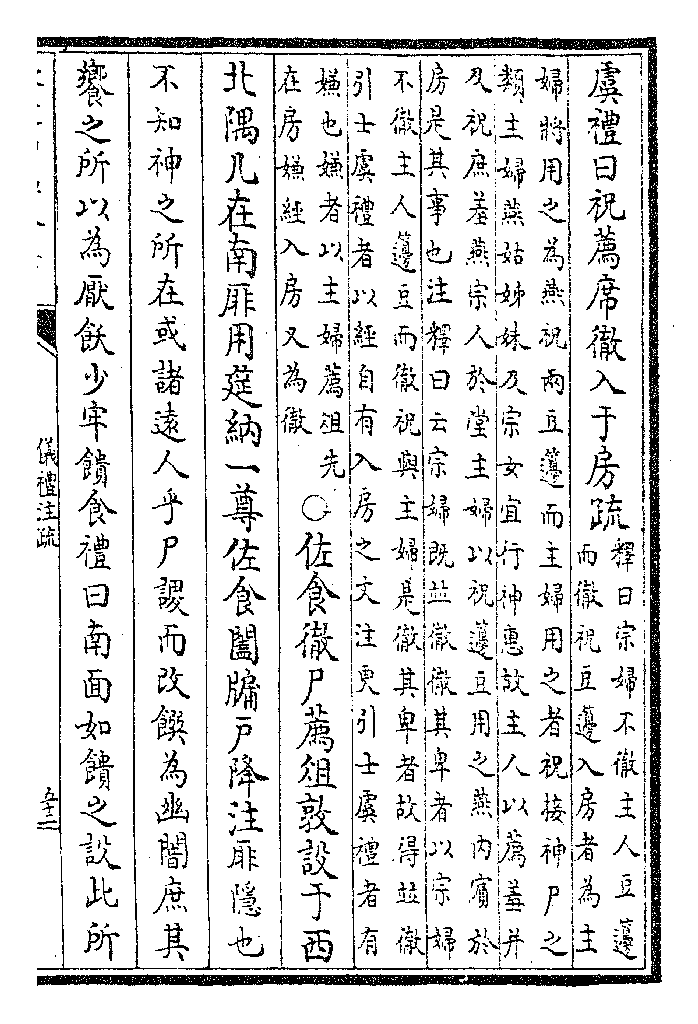 虞禮曰祝薦席徹入于房疏
釋曰宗婦不徹主人豆籩
而徹祝豆籩入房者為主
婦將用之為燕祝兩豆籩而主婦用之者祝接神尸之
類主婦燕姑姊妹及宗女宜行神惠故主人以薦羞并
及祝庶羞燕宗人於堂主婦以祝籩豆用之燕內賓於
房是其事也注釋曰云宗婦既並徹徹其卑者以宗婦
不徹主人籩豆而徹祝與主婦是徹其卑者故得並徹
引士虞禮者以經自有入房之文注更引士虞禮者有
嫌也嫌者以主婦薦俎先
在房嫌經入房又為徹
○佐食徹尸薦俎敦設于西
北隅几在南厞用筵納一尊佐食闔牖戶降注厞隱也
不知神之所在或諸遠人乎尸謖而改饌為幽闇庶其
饗之所以為厭飫少牢饋食禮曰南面如饋之設此所
儀禮注疏